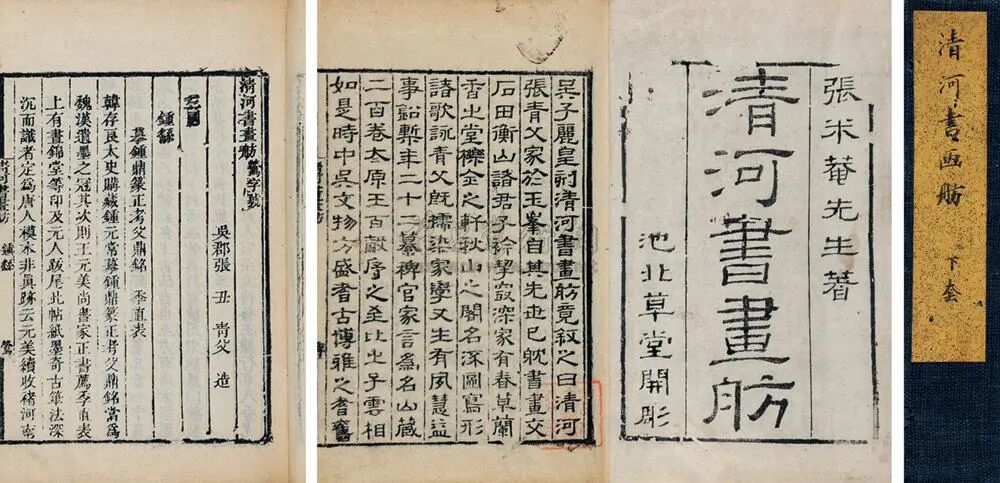 清河書画舫 下套
張米菴先生著
清河書畫舫
池北草堂開彫
吳子麗皇刻清河書畫舫竟叙之曰清河
張青父家於玉峯自其先世已躭書畫交
石田衡山諸君子紟契㝡深家有春草蘭
香之堂櫟金之軒秋山之閣名流圖寫形
諸歌詠青父既擩染家學又生有夙慧益
事鉛槧年二十二纂稗官家言為名山藏
二百卷太原王百穀序之至比之子雲相
如是時中吳文物方盛耆古博雅之耆舊
清河書畫舫 鶯字號
吳郡張丑青父造
三國
鍾繇
摹鍾鼎篆正考父鼎銘 季直表
韓存良太史購藏鍾元常摹鍾鼎篆正考父鼎銘當為
魏漢遺墨之冠其次則王元美尚書家正書薦季直表
上有晝錦堂等印及元人跋尾北帖紙墨奇古筆法深
沉而識者定爲唐人模本非眞跡云元美續收褚河南
清河書畫舫 鍾繇 鶯